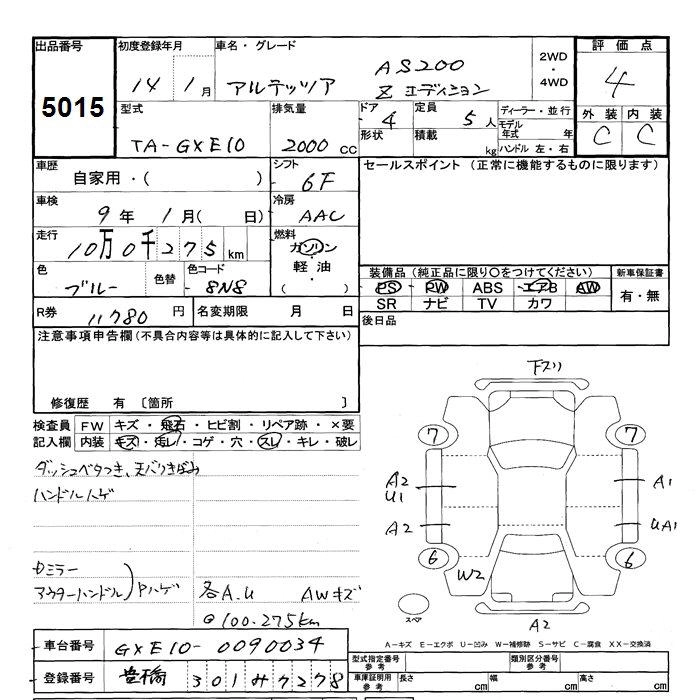 出品番号 初度登録年月 車名・グレード 2WD・4WD 評価点
5015 14年1月 アルテッツァ AS200 Zエディション 4
外装 内装
C C
型式 排気量 ドア 定員 ディーラー・並行
TA-GXE10 2000cc 4 5人 モデル年式 年
形状 積載 kg ハンドル 左・右
車歴 シフト セールスポイント (正常に機能するものに限ります)
自家用・( ) 6F
車検 冷房
9年 1月( 日) AAC
走行 燃料
10万0千275km ガソリン・軽油・( )
色 色替 色コード 装備品 (純正品に限り○をつけてください) 新車保証書
ブルー 8N8 PS PW ABS エアB AW 有・無
SR ナビ TV カワ
R券 11780円 名変期限 月 日 後日品
注意事項申告欄 (不具合内容等は具体的に記入して下さい)
修復歴 有 〔箇所 〕
検査員 FW キズ・飛石・ヒビ割・リペア跡・×要
記入欄 内装 キズ・汚レ・コゲ・穴・スレ・キレ・破レ
ダッシュベタつき、天バリきばみ
ハンドルハゲ
Dミラー
アウターハンドル)Pハゲ 各A.U AWキズ
@100.275km
下スリ
7 7
A2 U1 A1
A2 UA1
6 6
W2
スペア A2
A-キズ E-エクボ U-凹み W-補修跡 S-サビ C-腐食 XX-交換済
車台番号 GXE10-0090034 型式指定番号 参考 類別区分番号 参考
登録番号 豊橋 301 7278 車庫証明用 参考 長さ cm 幅 cm 高さ cm